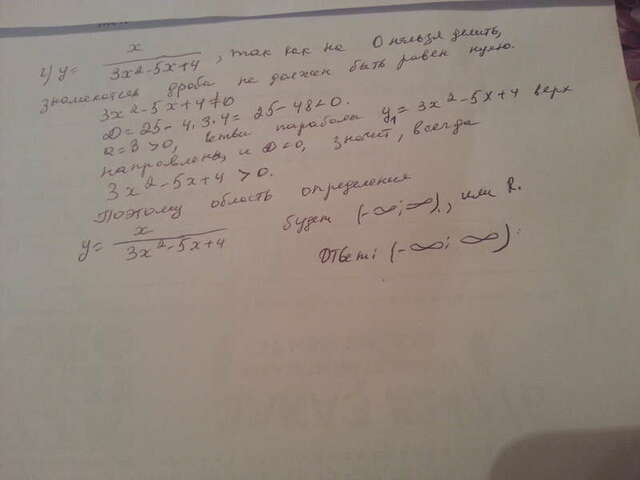 г) y = x / 3x²-5x+4, так как на 0 нельзя делить,
знаменатель дроби не должен быть равен нулю.
3x²-5x+4≠0
D=25-4·3·4= 25-48<0.
a=3>0, ветви параболы y₁=3x²-5x+4 верх
направлены, и D<0, значит, всегда
3x²-5x+4>0.
Поэтому область определения
y= x / 3x²-5x+4 будет (-∞;∞), или R.
Ответ: (-∞; ∞).